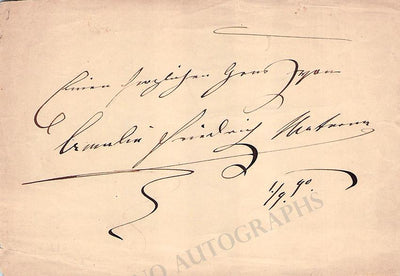 Einen herzlichen Gruss von
Amalie Friedrich Materna
1/9. 90.
TAMINO AUTOGRAPHS